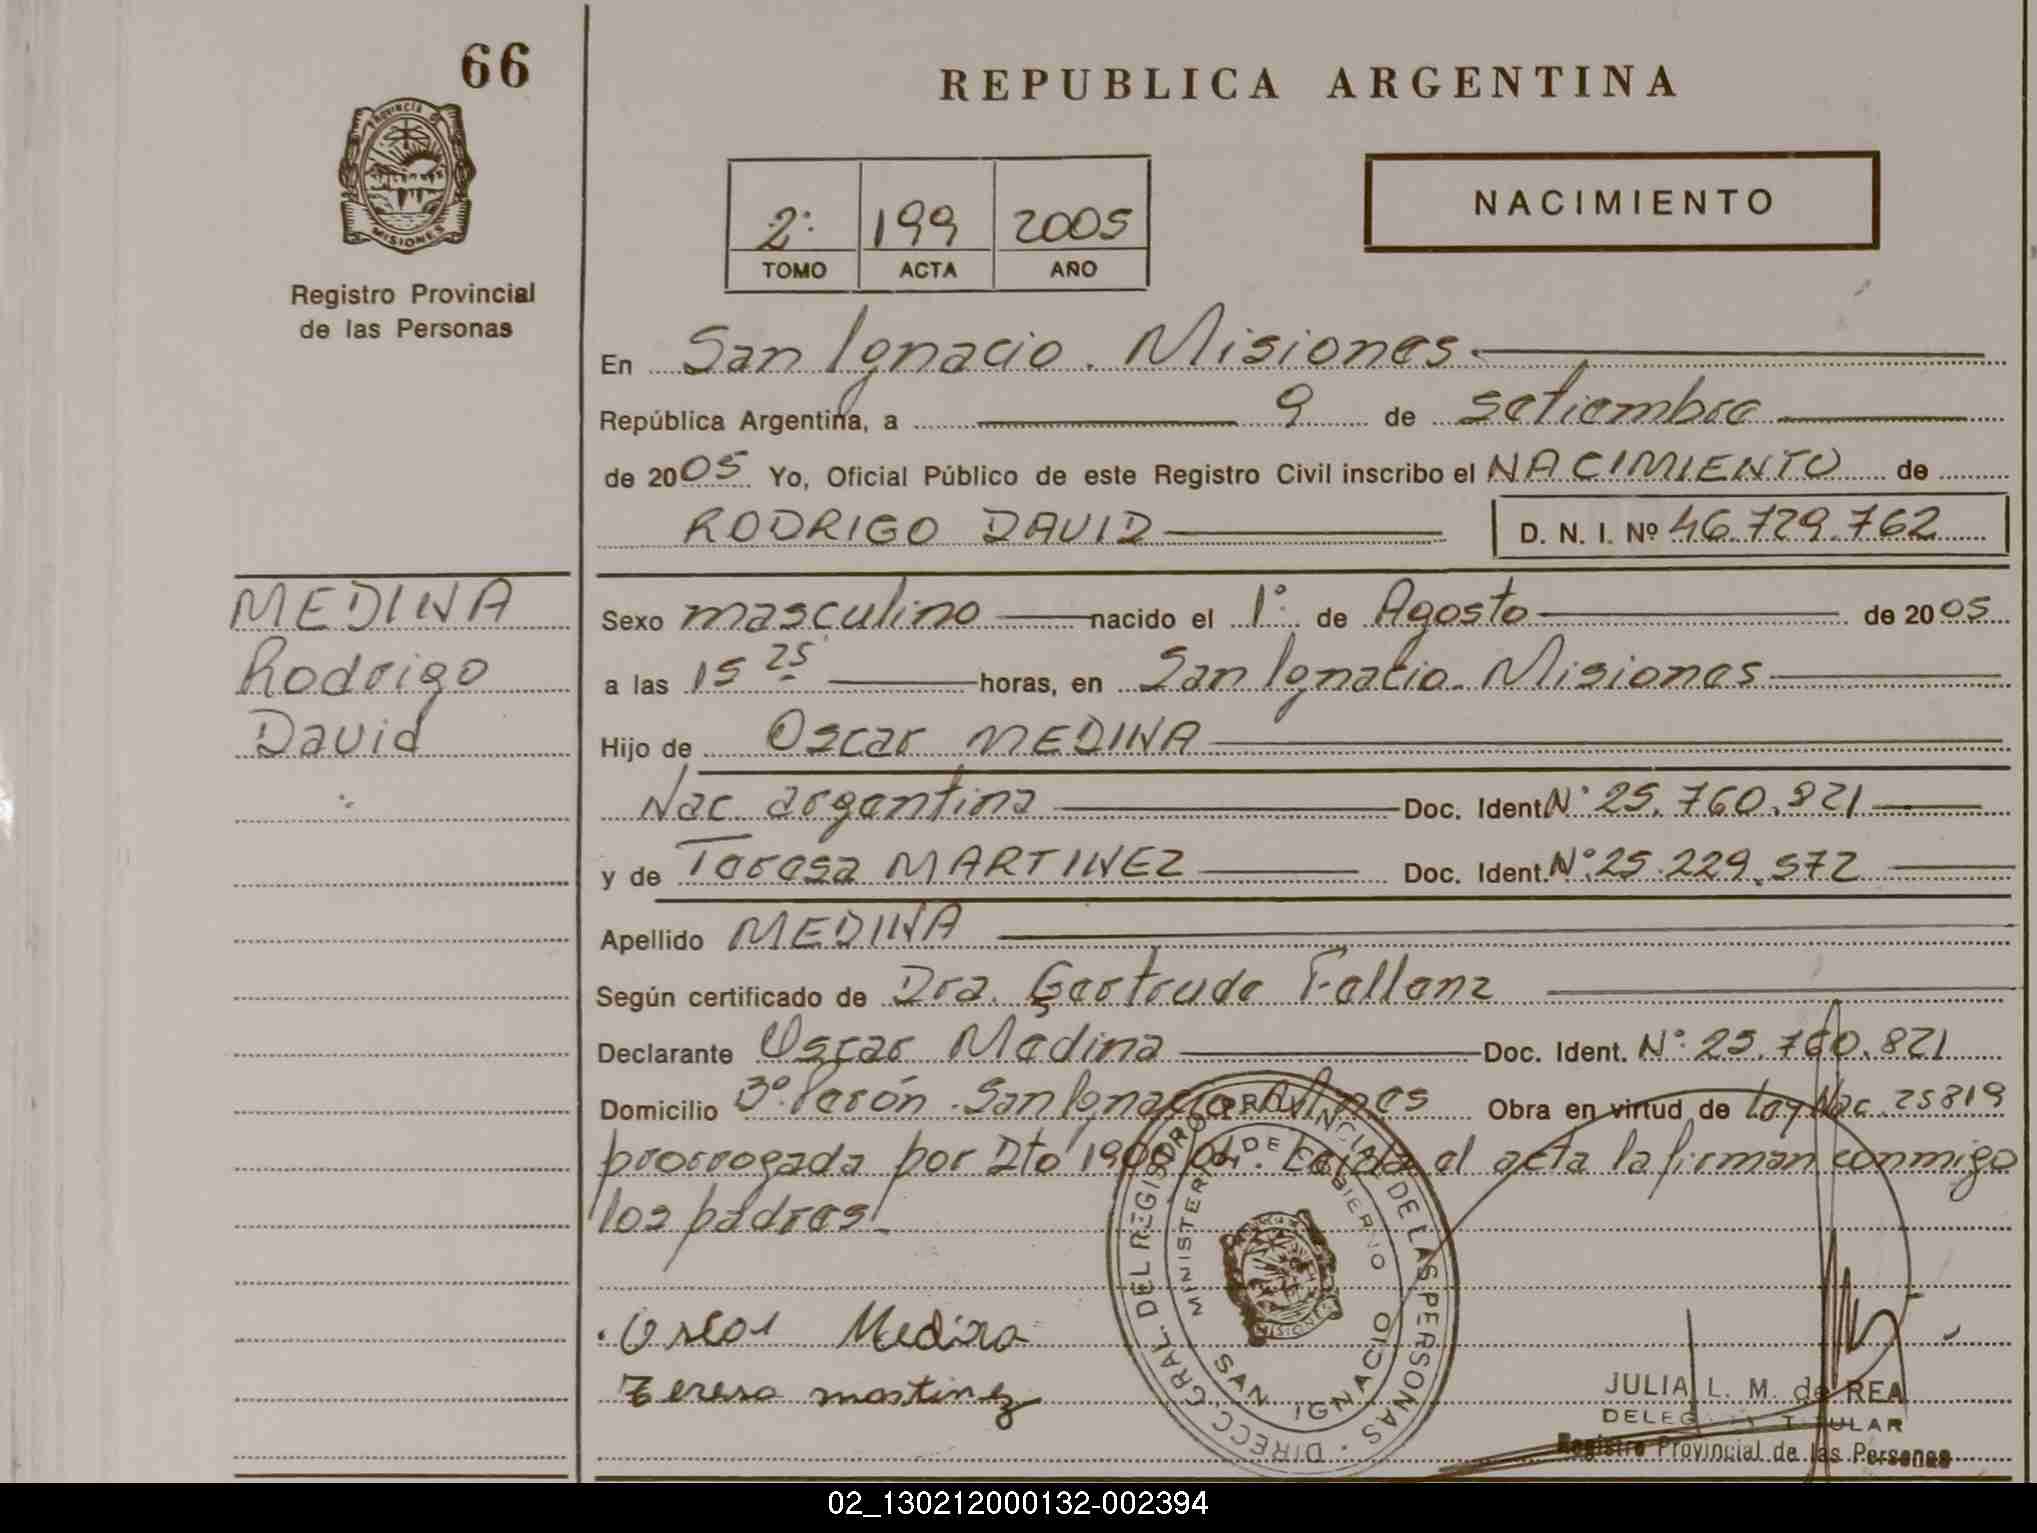 66
REPUBLICA ARGENTINA
PROVINCIA DE
MISIONES
Registro Provincial
de las Personas
2º 199 2005
TOMO ACTA AÑO
NACIMIENTO
En San Ignacio. Misiones.
República Argentina, a 9 de setiembre
de 2005 Yo, Oficial Público de este Registro Civil inscribo el NACIMIENTO de
RODRIGO DAVID D. N. I. Nº 46.729.762
MEDINA
Rodrigo
David
Sexo masculino nacido el 1º de Agosto de 2005
a las 15 25 horas, en San Ignacio. Misiones
Hijo de Oscar MEDINA
Nac. argentina Doc. Ident. Nº 25.760.821
y de Teresa MARTINEZ Doc. Ident. Nº 25.229.572
Apellido MEDINA
Según certificado de Dra. Gertrude Fallenz
Declarante Oscar Medina Doc. Ident. Nº 25.760.821
Domicilio 3º Perón. San Ignacio. Mnes Obra en virtud de Ley Nac. 25819
prorrogada por Dto 1900/04. Leída el acta la firman conmigo
los padres.
Oscar Medina
Teresa martinez
DIRECC. GRAL. DEL REGISTRO PROVINCIAL DE LAS PERSONAS
MINISTERIO DE GOBIERNO
MISIONES
SAN IGNACIO
JULIA L. M. de REA
DELEGADA TITULAR
Registro Provincial de las Personas
02_130212000132-002394